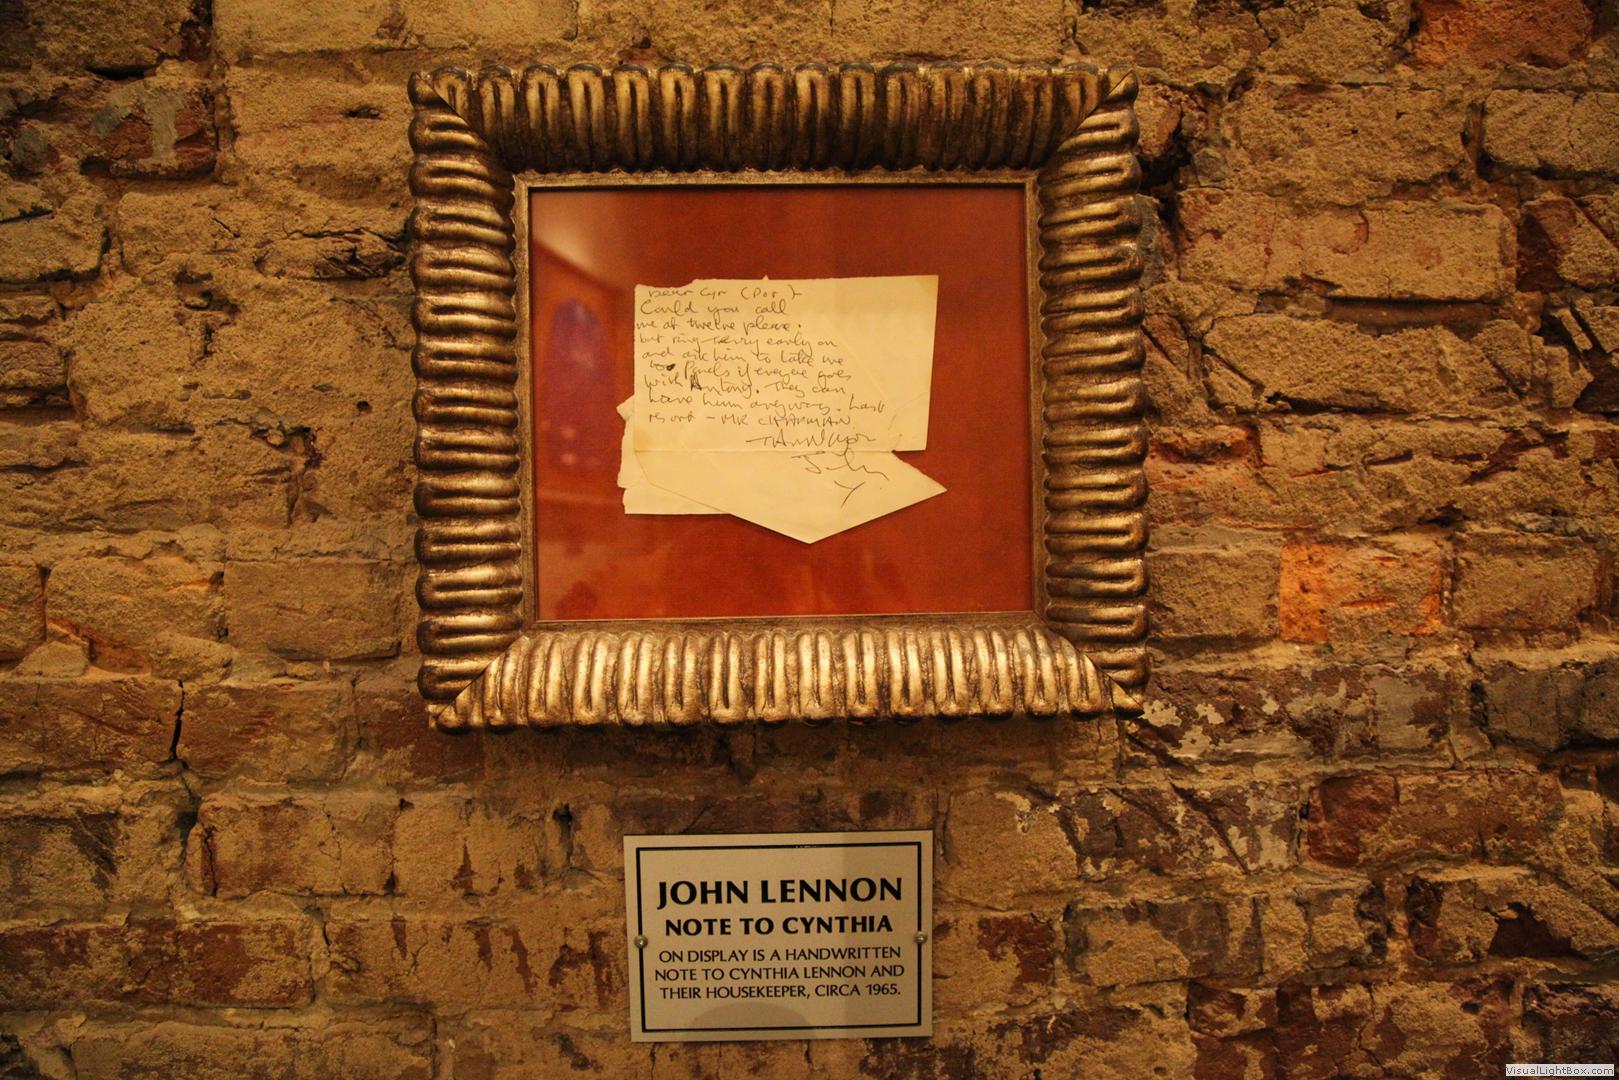 Dear Cyn (Dot)
Could you call
me at twelve please.
but ring Terry early on
and ask him to take me
to if everyone goes
with Antony. They can
have him anyway. Last
resort - MR CHAPMAN
John
JOHN LENNON
NOTE TO CYNTHIA
ON DISPLAY IS A HANDWRITTEN
NOTE TO CYNTHIA LENNON AND
THEIR HOUSEKEEPER, CIRCA 1965.
VisualLightBox.com